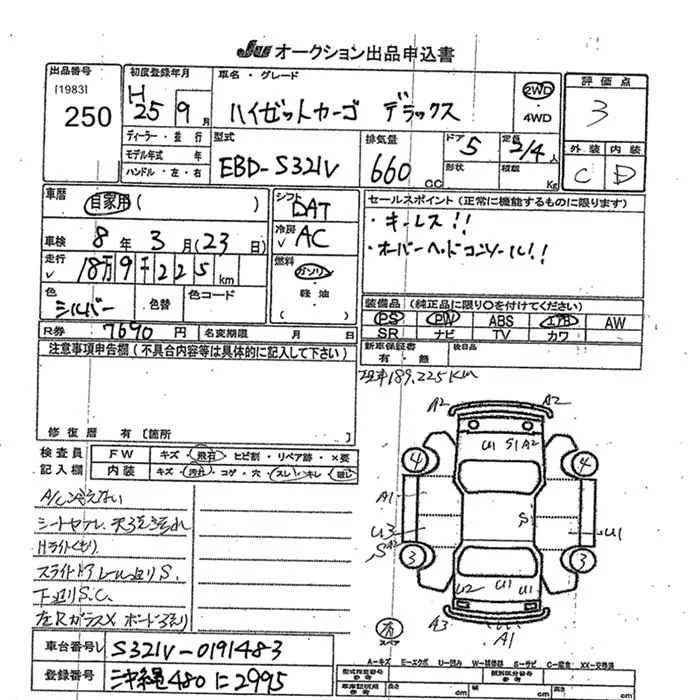 JU オークション出品申込書
出品番号
[1983]
250
初度登録年月
H25 9月
車名・グレード
ハイゼットカーゴ デラックス
2WD
・
4WD
評価点
3
外装 内装
C D
ディーラー・並行
モデル年式 年
ハンドル・左・右
型式
EBD-S321V
排気量
660 CC
ドア 5
形状
定員 2/4人
積載 Kg
車歴
自家用 ( )
車検 8年 3月 (23日)
走行
18万9千225km
色
シルバー
色替
色コード
R券 7690円 名変期限 月 日
シフト
DAT
冷房
AC
燃料
ガソリン
・
軽油
( )
セールスポイント (正常に機能するものに限ります)
・キーレス!!
・オーバーヘッドコンソール!!
装備品 (純正品に限り〇を付けてください)
PS PW ABS エアB AW
SR ナビ TV カワ
新車保証書
有・無
後日品
現車189,225km
注意事項申告欄 (不具合内容等は具体的に記入して下さい)
修復歴 有 [箇所
検査員
記入欄
FW キズ・飛石・ヒビ割・リペア跡・×要
内装 キズ・汚れ・コゲ・穴・スレ・キレ・破レ
A/C冷えない
Hライトくもり
下廻りS.C.
車台番号 S321V-0191483
登録番号 沖縄480に2995
A2 A2
U1 S1 A2
4 4
A1
U3
S
U1
3 3
U2 U1 U1
A3
A1
A=キズ E=エクボ U=凹み W=補修跡 S=サビ C=腐食 XX=交換済
型式指定番号
類別区分番号
長さ cm
cm
cm